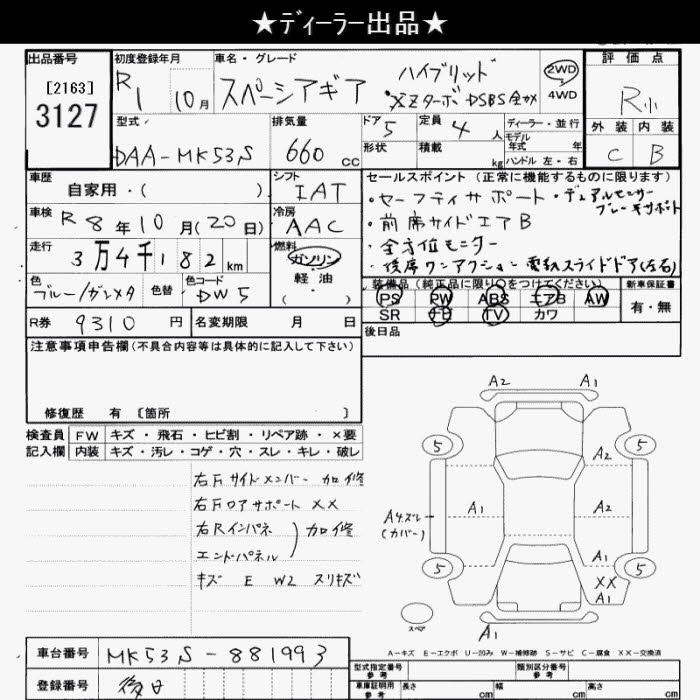 ★ディーラー出品★
出品番号
[2163]
3127
初度登録年月
R1 10月
車名・グレード
スペーシアギア ハイブリッド
XZターボ DSBS 全カメ
2WD
4WD
評価点
R小
型式
DAA-MK53S
排気量
660 cc
ドア 5
形状
定員 4 人
積載 kg
ディーラー・並行
モデル年式 年
ハンドル 左・右
外装 内装
C B
車歴
自家用・( )
シフト
IAT
車検 R 8年10月(20日)
冷房
AAC
走行 3万4千182km
燃料
ガソリン
軽油
( )
色
ブルー/ガンメタ
色替
色コード
DW5
R券 9310円
名変期限 月 日
セールスポイント(正常に機能するものに限ります)
・セーフティサポート・デュアルセンサーブレーキサポート
・前席サイドエアB
・全方位モニター
・後席ワンアクション電動スライドドア(左右)
装備品(純正品に限り○をつけてください)
PS PW ABS エアB AW
SR ナビ TV カワ
新車保証書
有・無
後日品
注意事項申告欄(不具合内容等は具体的に記入して下さい)
修復歴 有 [箇所 ]
検査員記入欄
FW キズ・飛石・ヒビ割・リペア跡・×要
内装 キズ・汚レ・コゲ・穴・スレ・キレ・破レ
右Fサイドメンバー 加修
右Fロアサポート XX
右Rインパネ
エンドパネル
加修
キズ E W2 スリキズ
A2 A1
5 5
A2
A1 A2
A4ズレ
(カバー)
A1
5 5
XX
A1
スペア
A1
A-キズ E-エクボ U-凹み W-補修跡 S-サビ C-腐食 XX-交換済
車台番号 MK53S-881993
登録番号 後日
型式指定番号
参考
類別区分番号
参考
車庫証明用
参考
長さ cm 幅 cm 高さ cm